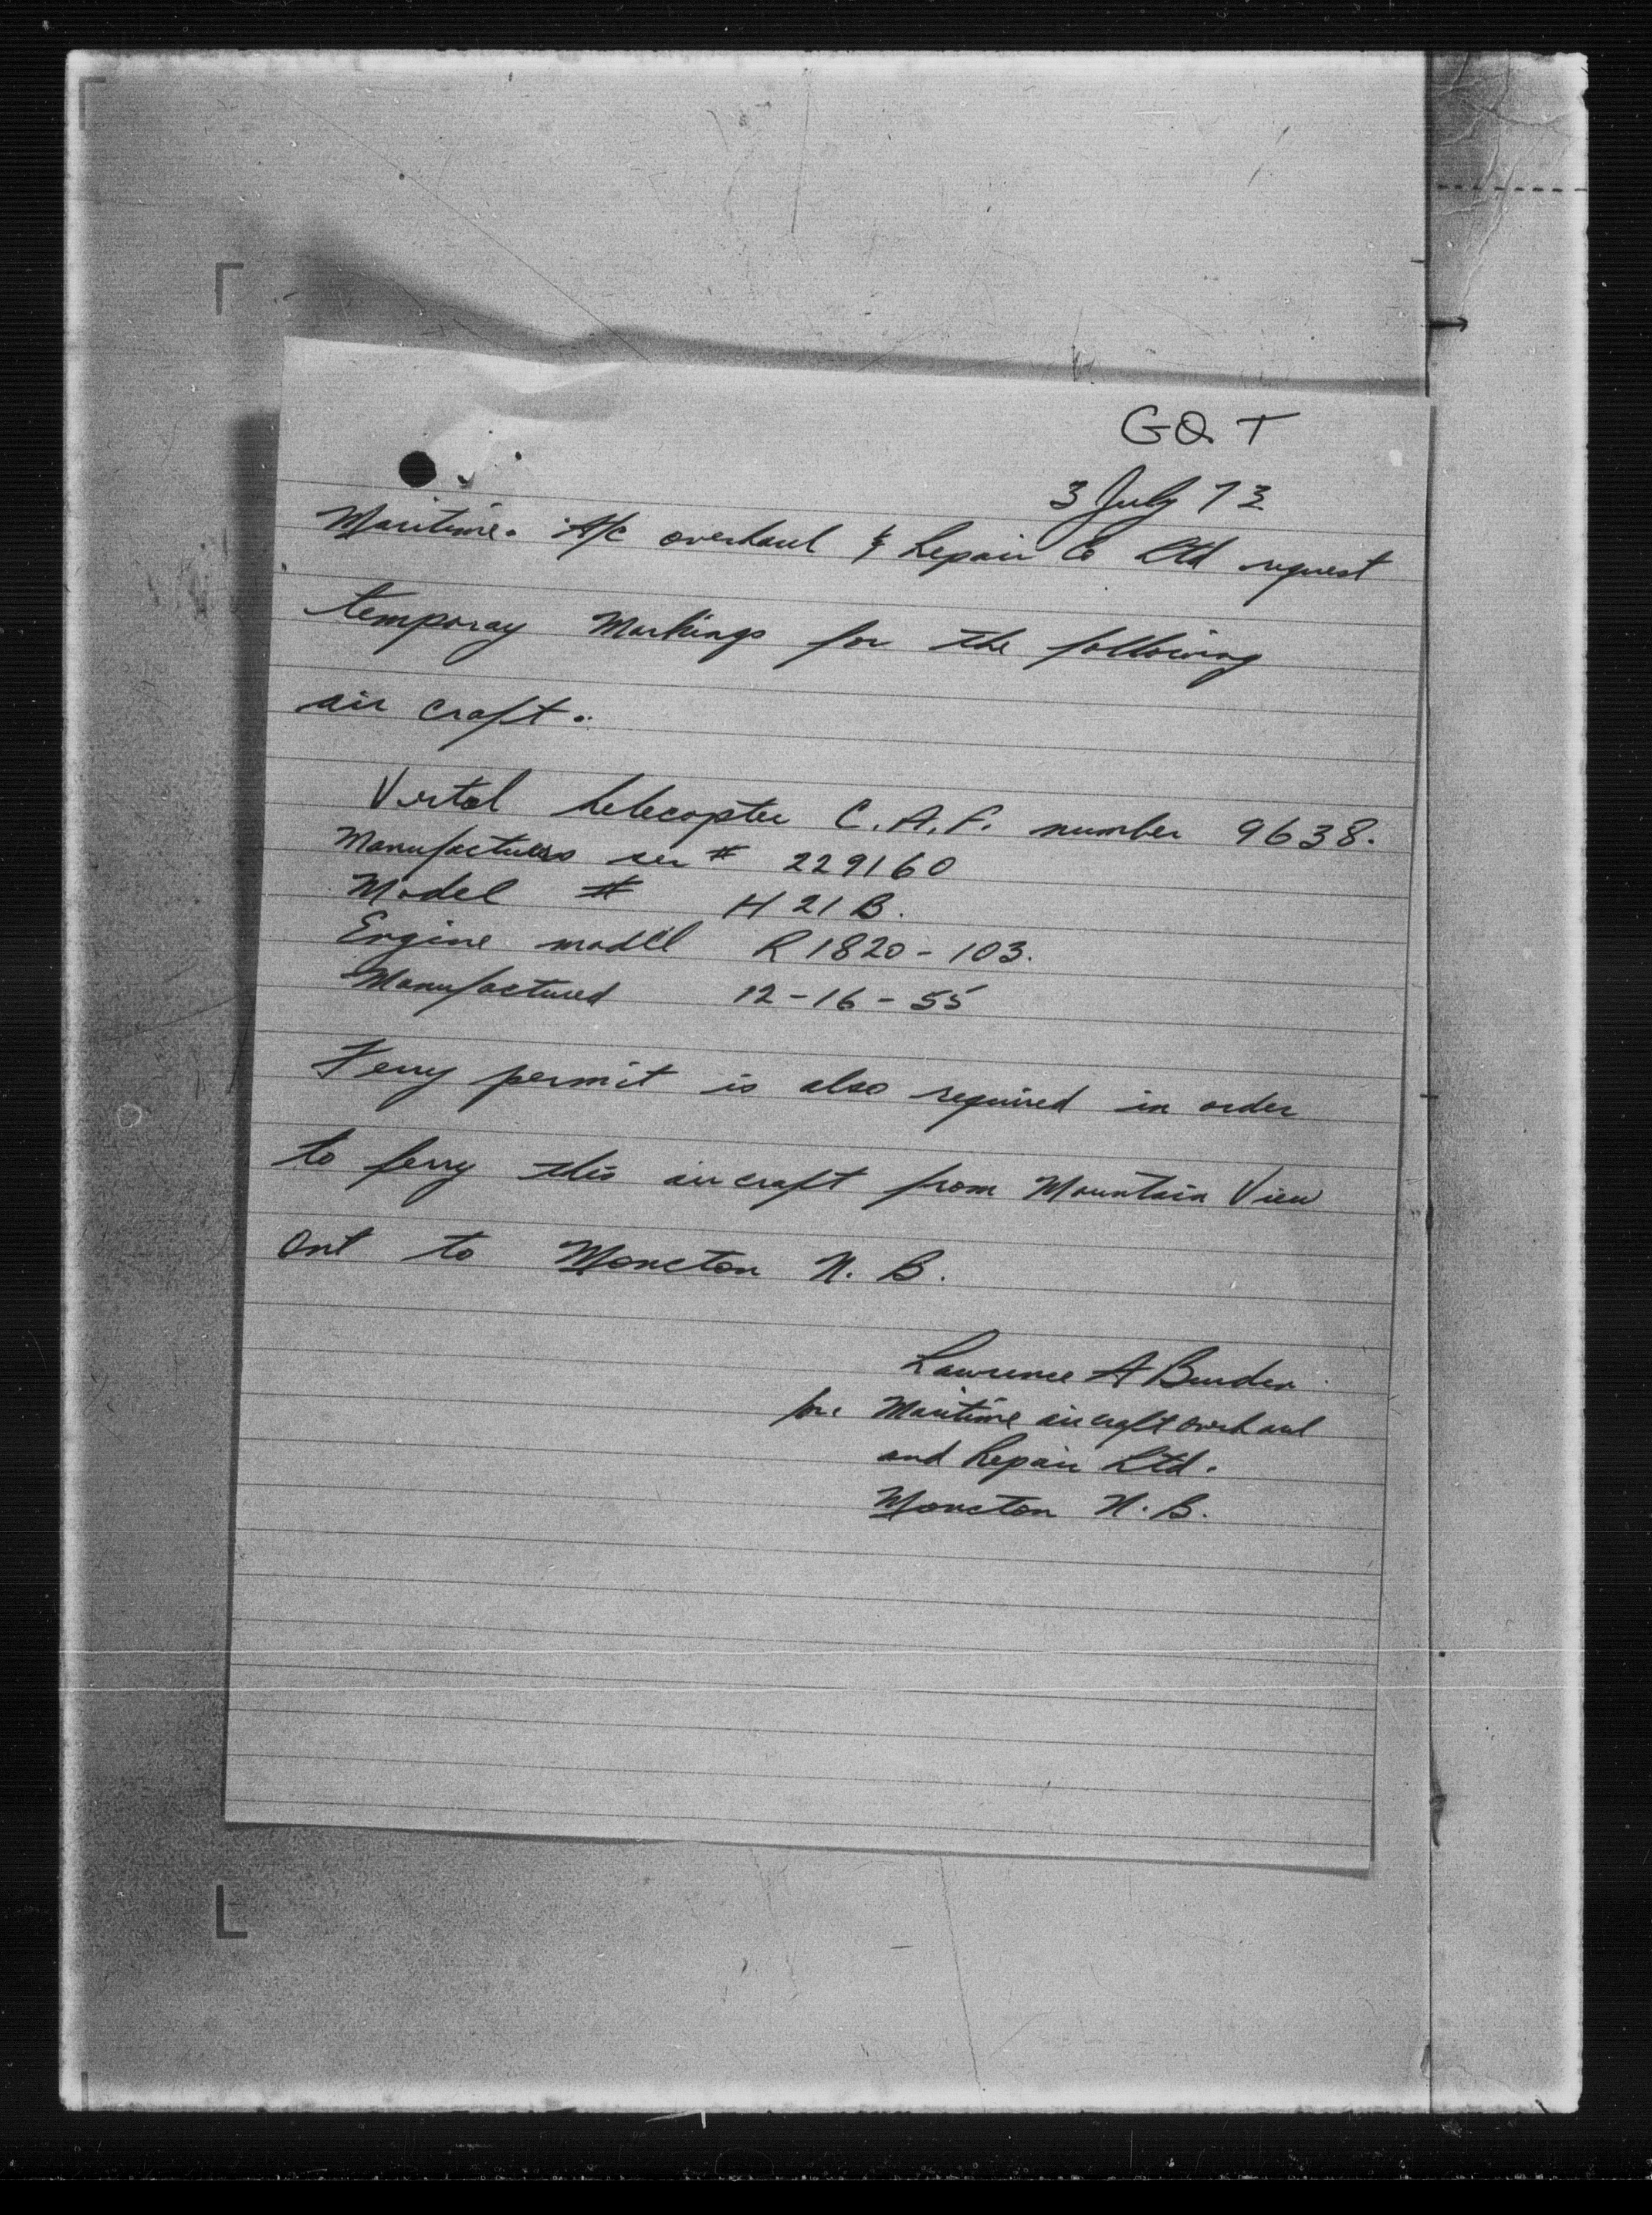 GQT
3 July 73
Maritime. A/C overhaul & Repair Co Ltd request
temporay Markings for the following
air craft.
Vertol helecopter C.A.F. number 9638.
Manufactuers ser # 229160
Model # H 21 B.
Engine modell R 1820-103.
Manufactured 12-16-55
Ferry permit is also required in order
to ferry this aircraft from Mountain View
Ont to Moncton N.B.
Lawrence A Burden
for: Maritime aircraft overhaul
and Repair Ltd.
Moncton N.B.